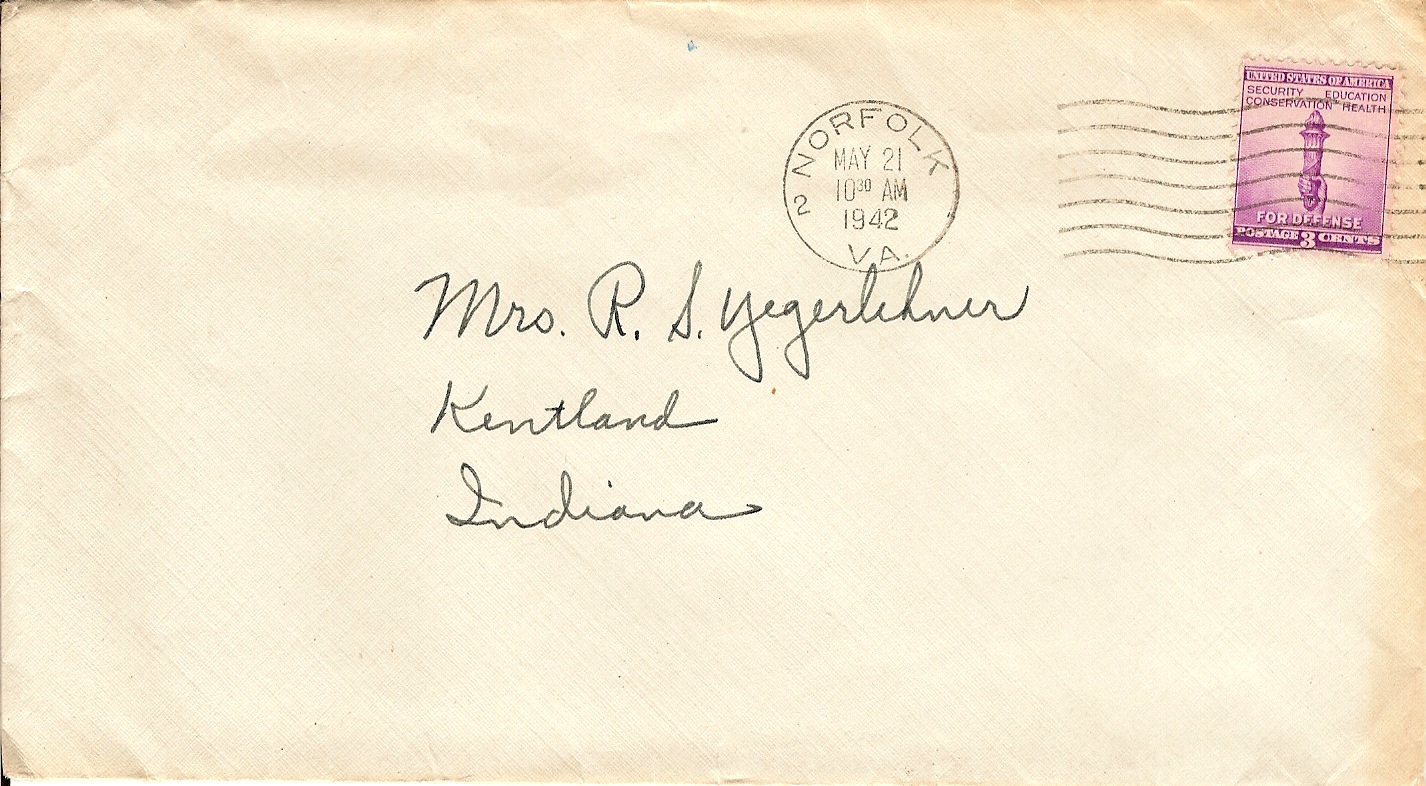 UNITED STATES OF AMERICA
SECURITY EDUCATION
CONSERVATION HEALTH
FOR DEFENSE
POSTAGE 3 CENTS
2 NORFOLK
MAY 21
10³⁰ AM
1942
VA.
Mrs. R. S. Yegerlehner
Kentland
Indiana